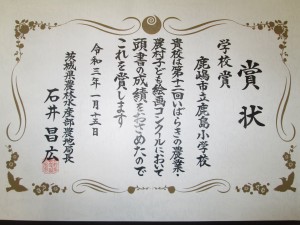 賞状
学校賞
鹿嶋市立鹿島小学校
貴校は第十二回いばらきの農業・
農村子ども絵画コンクールにおいて
頭書の成績をおさめたので
これを賞します
令和三年一月十五日
茨城県農林水産部農地局長
石井昌広